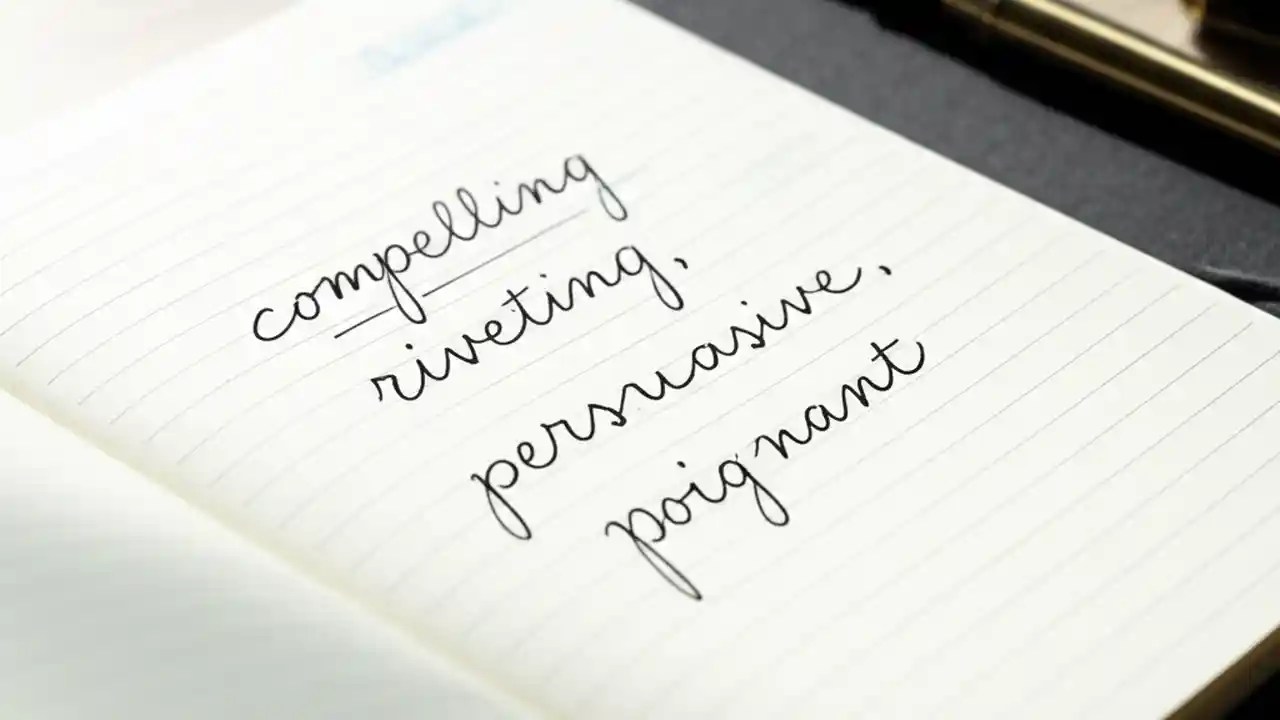 compelling
riveting,
persuasive,
poignant